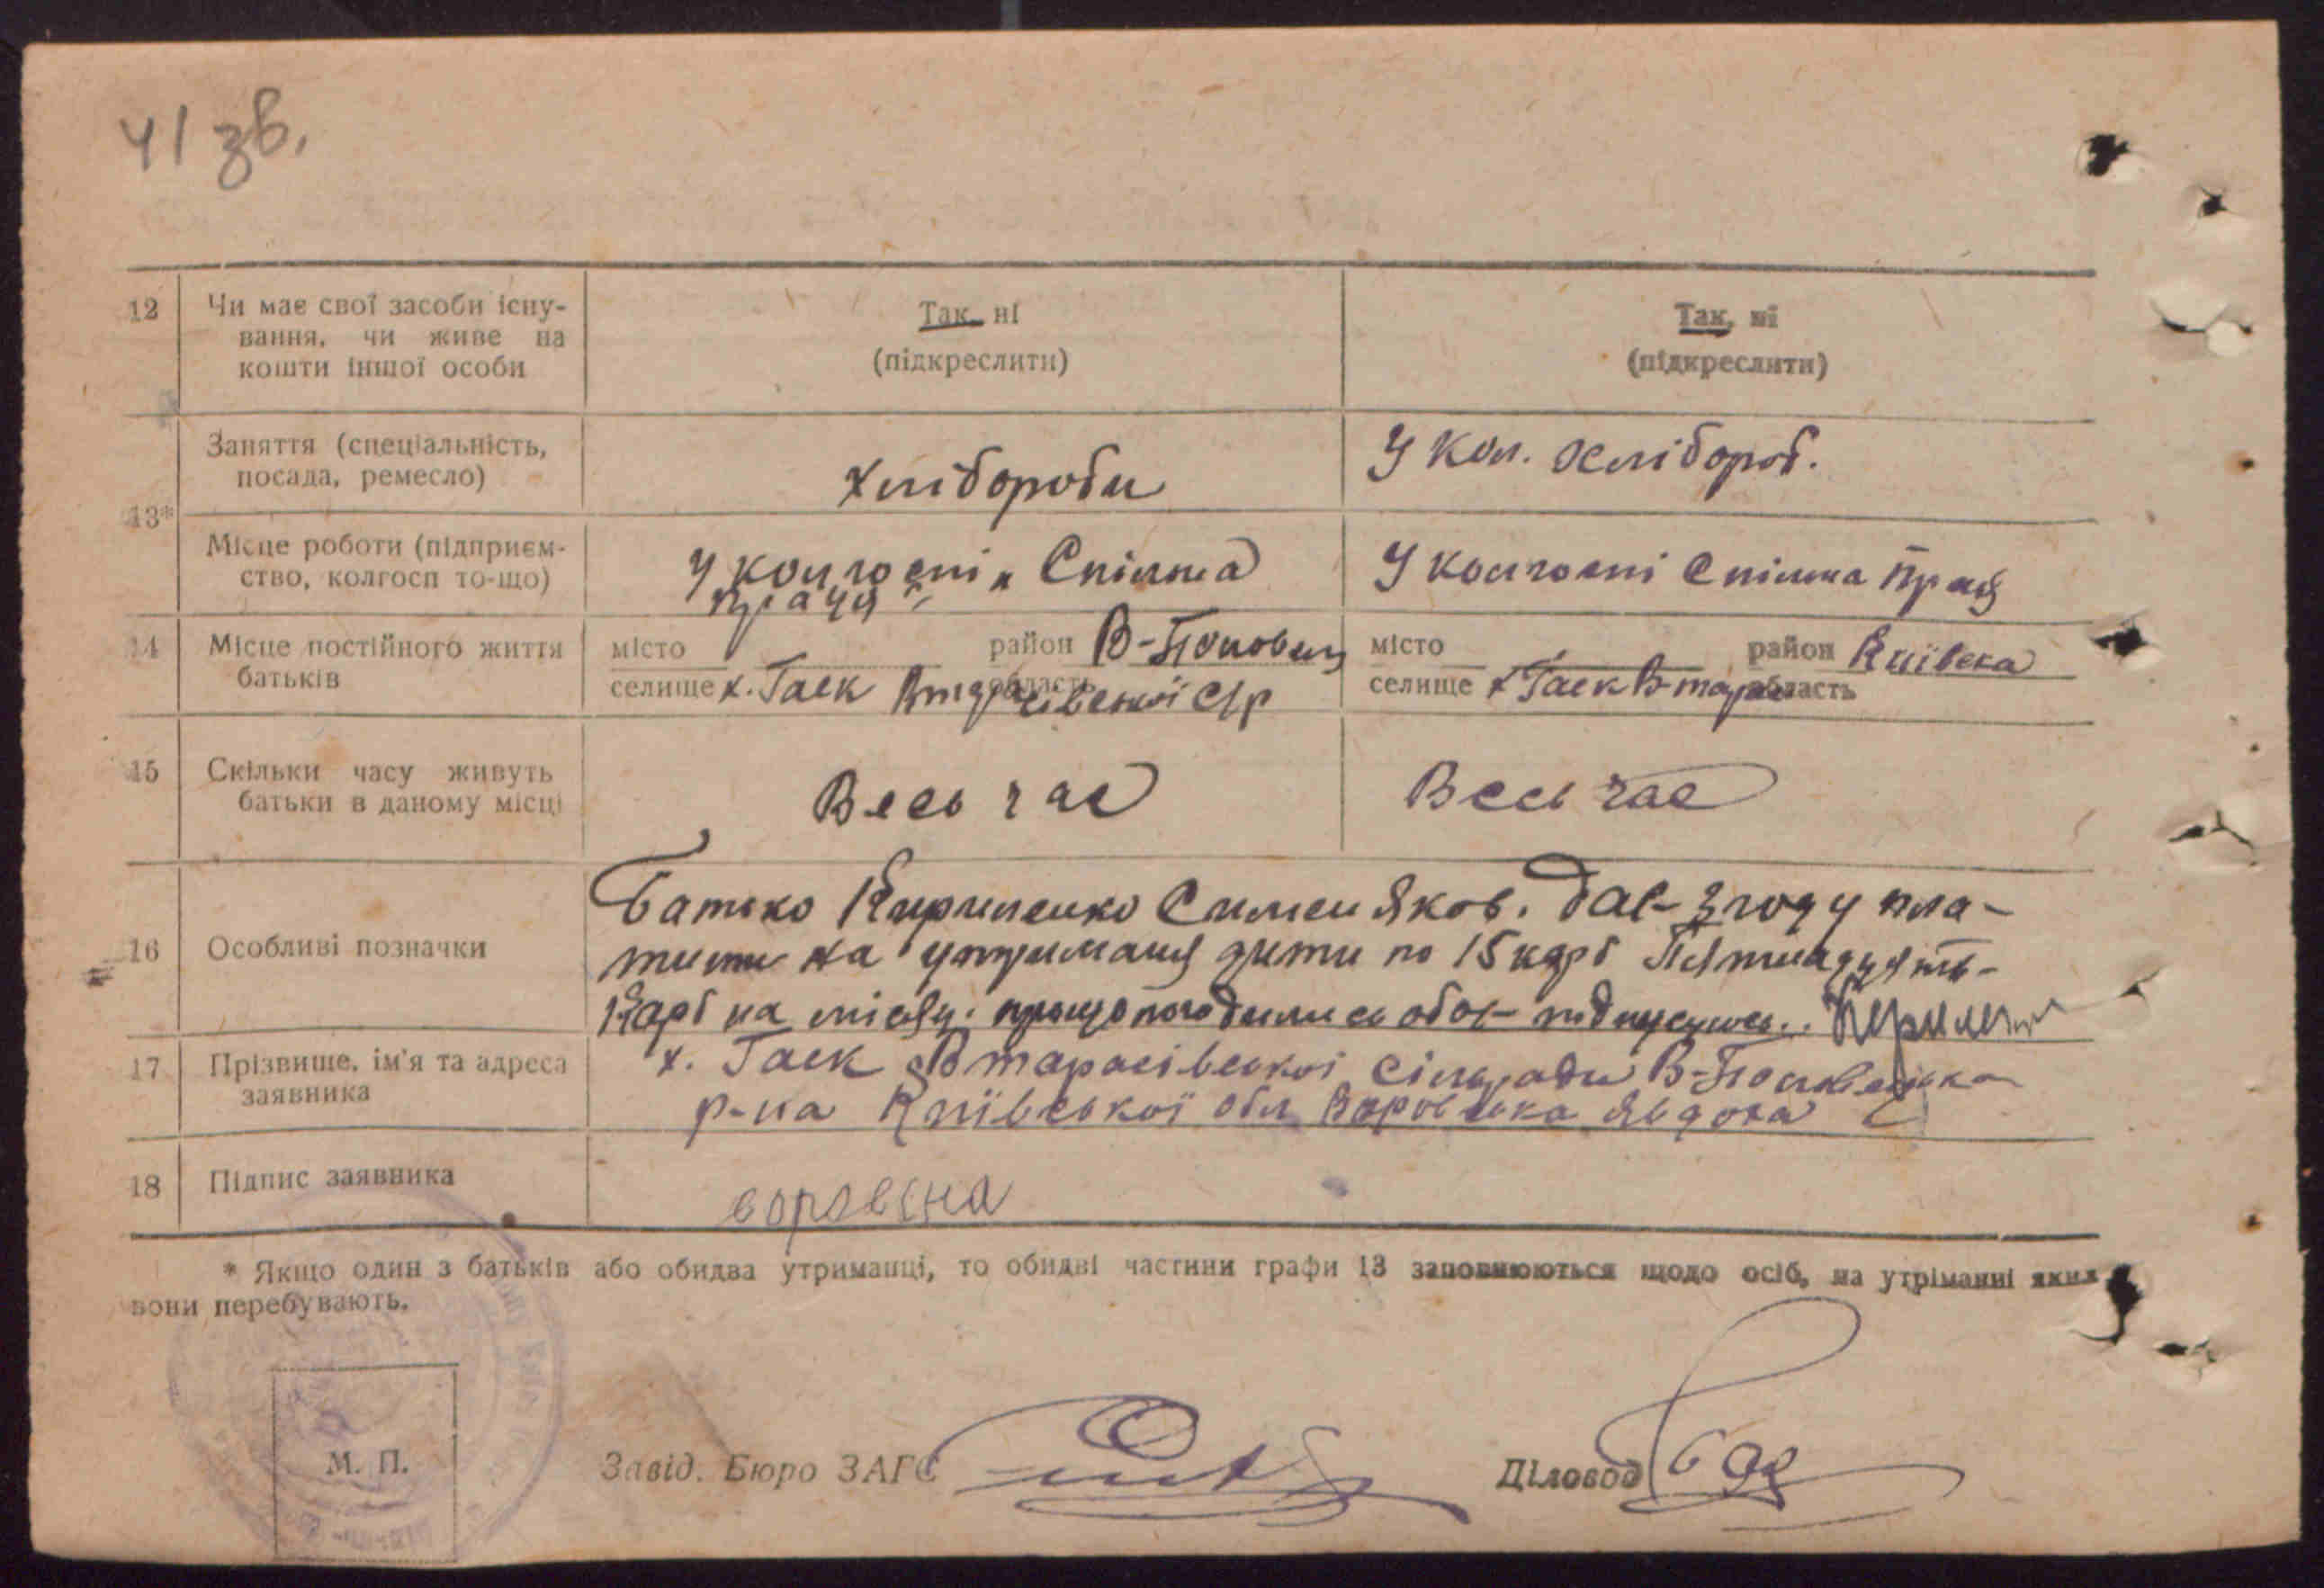 41 зв.
12
Чи має свої засоби існу-
вання, чи живе на
кошти іншої особи
Так, ні
(підкреслити)
Так, ні
(підкреслити)
13*
Заняття (спеціальність,
посада, ремесло)
хлібороби
У кол. хлібороб.
Місце роботи (підприєм-
ство, колгосп то-що)
У колгоспі „Спільна
праця"
У колгоспі Спільна Праця
14
Місце постійного життя
батьків
місто
район В-Половец
селище х. Гаєк
область
сівської С/р
місто
район Київска
селище х Гаєк В-тара
область
15
Скільки часу живуть
батьки в даному місці
Весь час
Весь час
16
Особливі позначки
Батько Кириленко Симен Яков. дав згоду пла-
тити на утриманя дити по 15 карб Пятнадцять-
Карб на місяц. прощо погодились обоє підпусуюсь..
17
Прізвище, ім'я та адреса
заявника
х. Гаєк Втарасівської сільради В-Половецька
р-на Київської обл Явдоха
18
Підпис заявника
* Якщо один з батьків або обидва утриманці, то обидві частини графи 13 заповнюються щодо осіб, на утріманні яких
вони перебувають.
М. П.
Завід. Бюро ЗАГС
Діловод